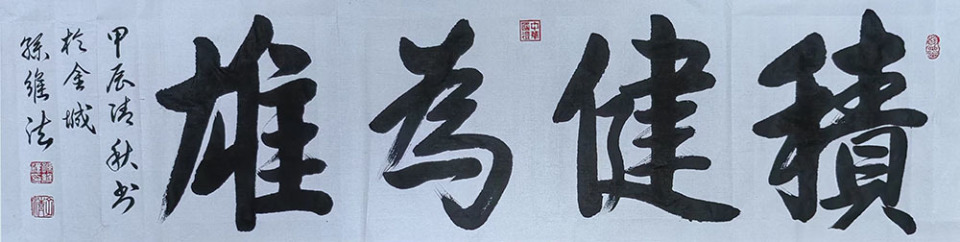 積健為雄
甲辰清秋书
於金城
孫維法